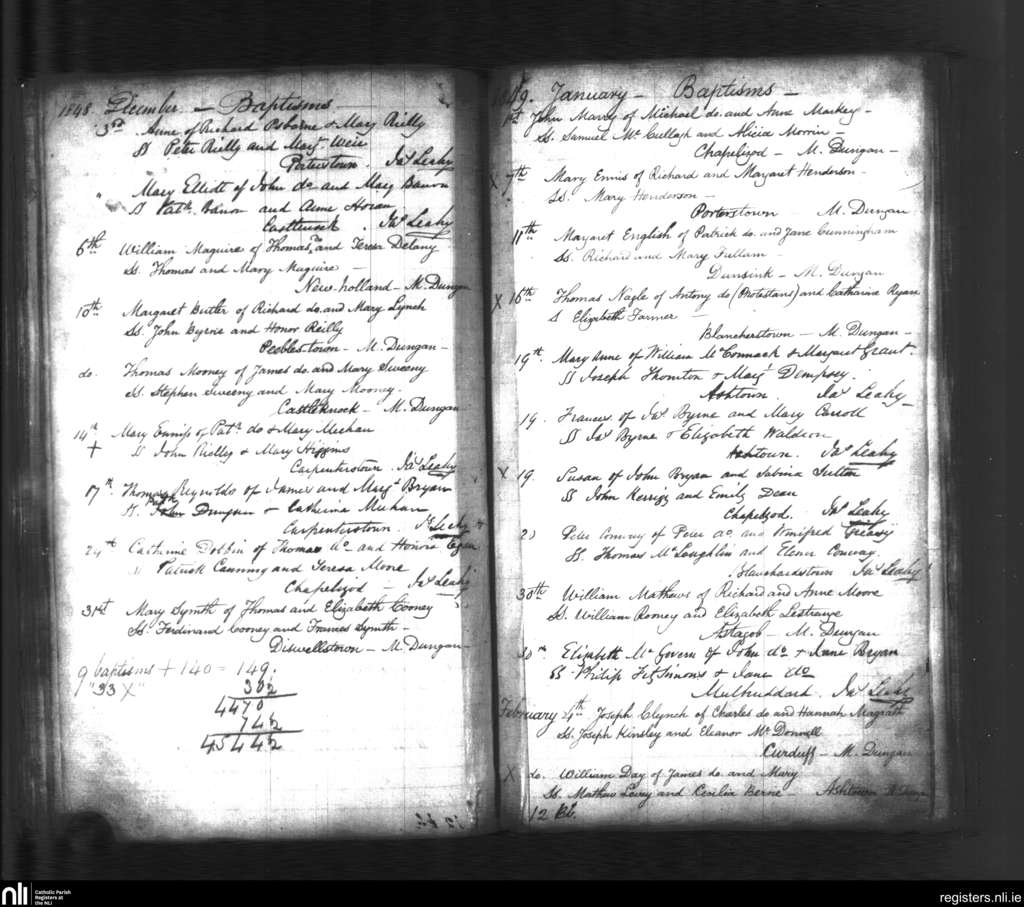 1848. December — Baptisms —
3rd Anne of Richard Osborne & Mary Rielly
SS Peter Rielly and Mary Weir
Porterstown. Jas Leahy
" Mary Elliott of John do and Mary Banon
SS Patk Banon and Anne Horan
Castleknock. Jas Leahy
6th William Maguire of Thomas do and Teresa Delany
Ss. Thomas and Mary Maguire —
New-holland — M. Dungan
10th Margaret Butler of Richard do. and Mary Lynch
Ss. John Byrne and Honor Reilly
Peeblestown — M. Dungan —
do. Thomas Mooney of James do. and Mary Sweeny
Ss. Stephen Sweeny and Mary Mooney.
Castleknock — M. Dungan
14th Mary Ennis of Patk do & Mary Meehan
+ SS John Rielly & Mary Higgins
Carpenterstown. Jas Leahy
17th Thomas Reynolds of James and Margt Bryan
John Dungan & Catherine Meehan
Carpenterstown. Jas Leahy
24th Catherine Dolbin of Thomas do and Honora Egan
SS Patrick Canning and Teresa Moore
Chapelizod — Jas Leahy
31st Mary Symth of Thomas and Elizabeth Cooney
Ss. Ferdinand Cooney and Frances Symth —
Diswellstown — M. Dungan
9 baptisms + 140 = 149.
"33 X" 302
4470
742
45442
1849. January — Baptisms —
1st John Mavey of Michael do. and Anne Markey —
Ss. Samuel Mc Cullagh and Alicia Morrin —
Chapelizod — M. Dungan —
X 7th Mary Ennis of Richard and Margaret Henderson —
Ss. Mary Henderson —
Porterstown M. Dungan
11th Margaret English of Patrick do. and Jane Cunningham
Ss. Richard and Mary Fullam —
Dunsink — M. Dungan
X 16th Thomas Nagle of Antony do (Protestant) and Catharine Ryan
S Elizabeth Farmer —
Blancherstown — M. Dungan —
19th. Mary Anne of William McCormack & Margaret Grant.
SS Joseph Thornton & Margt Dempsey.
Ashtown. Jas Leahy
19. Frances of Jas Byrne and Mary Carroll
SS Jas Byrne & Elizabeth Waldron
Ashtown. Jas Leahy
X 19. Susan of John Bryan and Sabina Sutton
SS John Kerrigg and Emily Dean
Chapelizod. Jas Leahy
Peter Conway of Peter do. and Winifred Treacy
SS. Thomas McLoughlin and Elenor Conway.
Blanchardstown Jas Leahy
30th William Mathews of Richard and Anne Moore
Ss. William Rooney and Elizabeth Lestrange
Astagob — M. Dungan
30th Elizabeth McGovern of John do & Anne Bryan
SS Philip FitzSimons & Jane do
Mulhuddard. Jas Leahy
February 4th Joseph Clynch of Charles do and Hannah Magrath
Ss. Joseph Kinsley and Eleanor McDonnell
Curduff — M. Dungan
X do. William Day of James do. and Mary
Ss. Mathew Levey and Cecilia Berne — Ashtown M. Dungan
12
nli Catholic Parish
Registers at
the NLI
registers.nli.ie